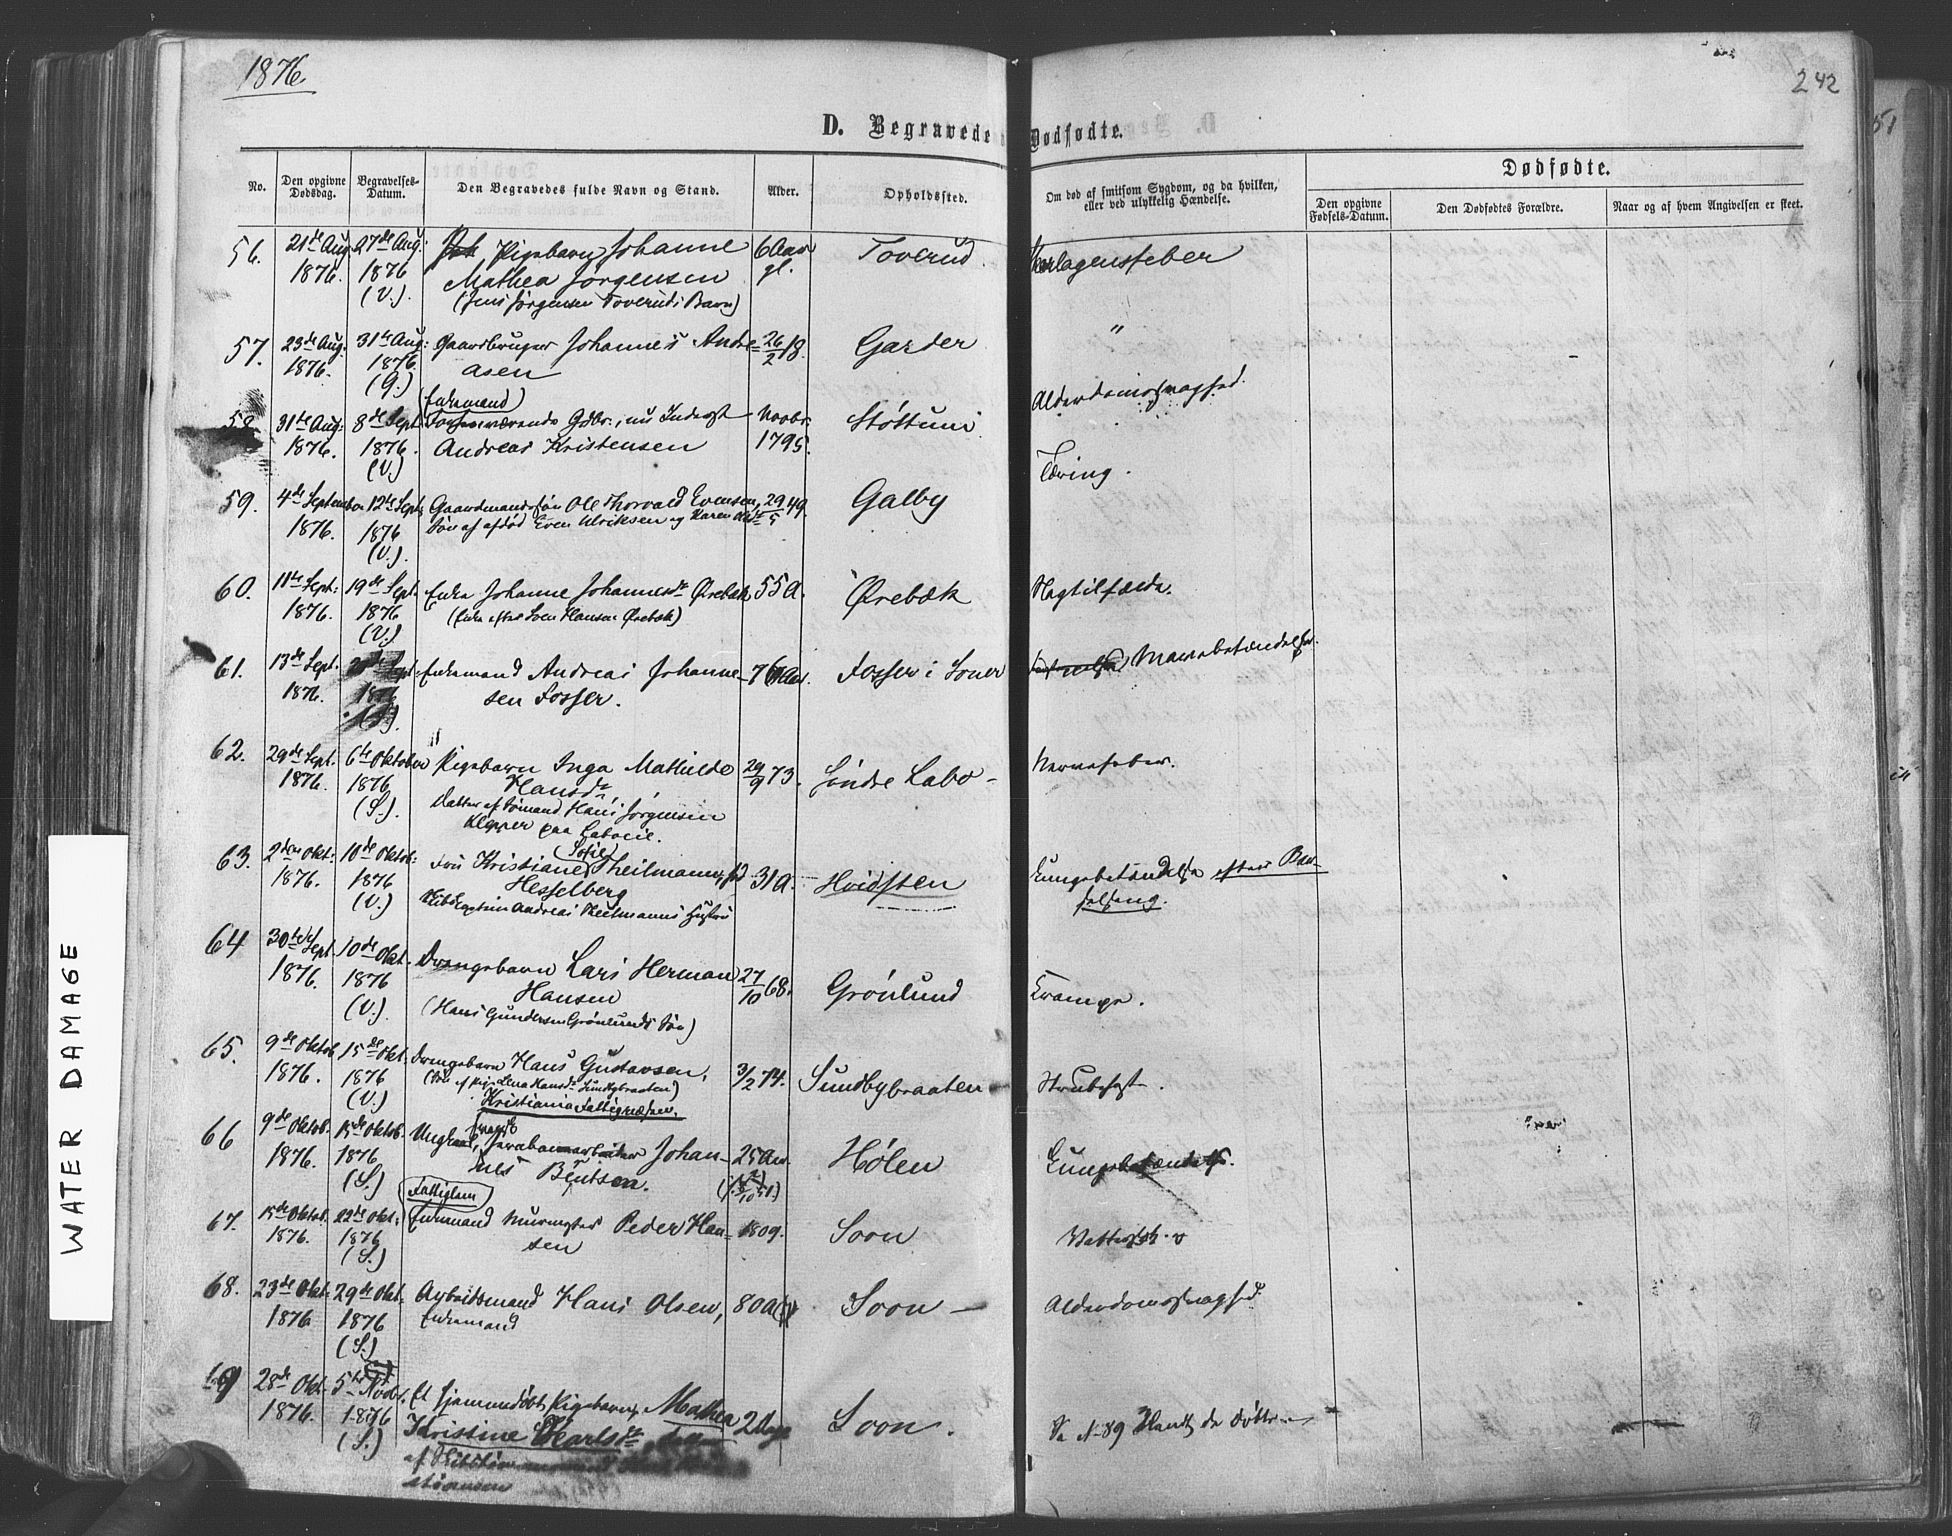 1876.
242
D. Begravede
Dødfødte.
No.
Den opgivne Dødsdag.
Begravelses-Datum.
Den Begravedes fulde Navn og Stand.
Alder.
Opholdssted.
Om død af smitsom Sygdom, og da hvilken, eller ved ulykkelig Hændelse.
Dødfødte.
Den opgivne Fødsels-Datum.
Den Dødfødtes Forældre.
Naar og af hvem Angivelsen er skeet.
51
56. 21de Aug 27de Aug: Pigebarn Johanne 6 Aar Toverud
1876. 1876 Mathea Jørgensen gl.
(V.) (Jens Jørgensen Toveruds Barn)
57. 23de Aug: 31te Aug: Gaardbruger Johannes Andre- 26/2 18. Garder "
1876. 1876. asen
(G.)
Enkemand
58. 31te Aug: 8de Sept Forhenværende Gdbr., nu Inderst Novbr. Støttum Alderdomssvaghed.
1876. 1876. Andreas Kristensen 1795.
(V.)
59. 4de September 12te Sept: Gaardmandssøn Ole Thorvald Evensen, 29/5 49. Galby Tæring.
1876. 1876 Søn af afdød Even Ulriksen og Karen
(V.)
60. 11te Sept: 19de Sept. Enke Johanne Johannesdr Ørebæk 55 A. Ørebæk Slagtilfælde.
1876. 1876 (Enke efter Sven Hansen Ørebæk)
(V.)
61. 13de Sept. Enkemand Andreas Johanne- 76 Aar. Fosser i Soner Mavebetændelse.
1876. 1876 sen Fosser.
(S).
62. 29de Sept. 6te Oktober Pigebarn Inga Mathilde 29/9 73. Søndre Labo- Nervefeber.
1876. 1876 Hansdr,
(S.) Datter af Sømand Hans Jørgensen
Klepper paa Laboeie.
63. 2den Okt: 10de Oktob: Fru Kristiane Sofie Theilmann, fød 31 A. Hvidsten Lungebetændelse efter Bar-
1876. 1876 Hesselberg selseng.
(V.) Skibskaptein Andreas Theilmanns Hustru
64 30te Sept 10de Okt. Drengebarn Lars Herman 27/10 68. Grønlund Krampe.
1876. 1876 Hansen
(V.) (Hans Gundersen Grønlunds Søn)
65. 9de Oktob 15de Okt. Drengebarn Hans Gustavsen, 3/2 74. Sundbybraaten Strubehoste.
1876. 1876 (Søn af Pige Lena Hansdr Sundbybraaten)
(V.) Kristiania Fattigvæsen.
66 9de Oktob. 15de Oktob. Ungkarl, Johan- 25 Aar Hølen Lungebetændelse.
1876. 1876 nes Bentsen.
(S.)
Fattiglem
67. 15de Oktob. 22de Okt: Enkemand Murmester Peder Han- 1809. Soon Vattersot.
1876. 1876 sen
(S.)
68. 23de Okt: 29de Okt. Arbeidsmand Hans Olsen, 80 A Soon - Alderdomssvaghed
1876 1876 Enkemand
(S.)
69 28de Okt. 5te Nvbr. Et hjemmedøbt Pigebarn, Mathea 2 Dage Soon.
1876. 1876 Kristine
(S.) af
WATER DAMAGE